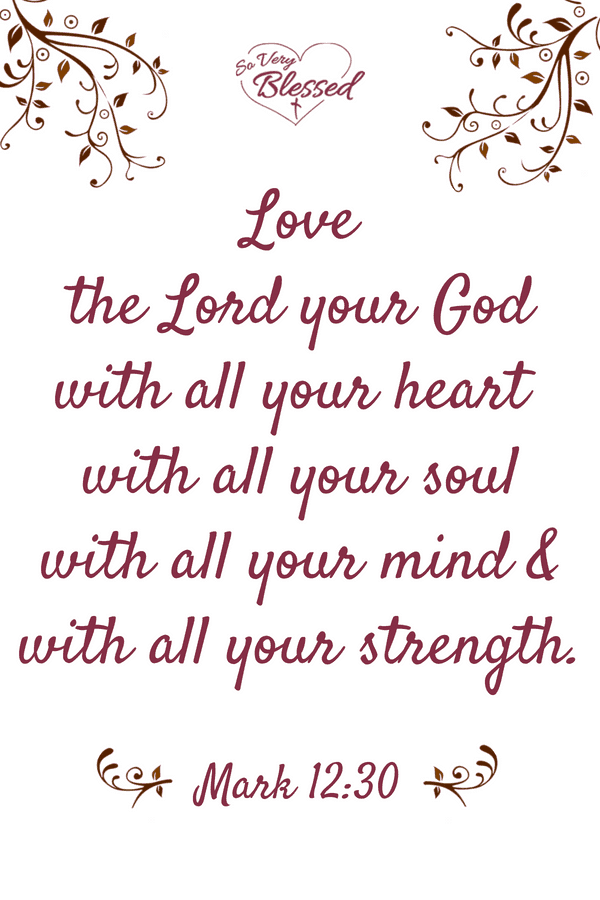 So Very
Blessed
Love
the Lord your God
with all your heart
with all your soul
with all your mind &
with all your strength.
Mark 12:30